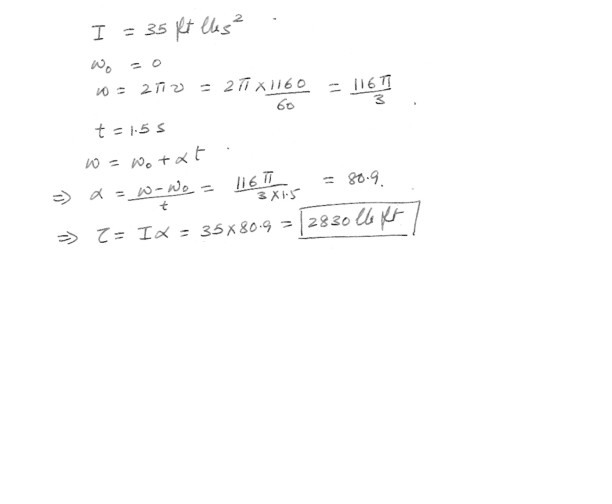 I = 35 ft lbs²
ω₀ = 0
ω = 2πν = 2π × 1160/60 = 116π/3 .
t = 1.5 s
ω = ω₀ + αt .
⇒ α = ω-ω₀/t = 116π/3×1.5 = 80.9.
⇒ τ = Iα = 35×80.9 = 2830 lb ft